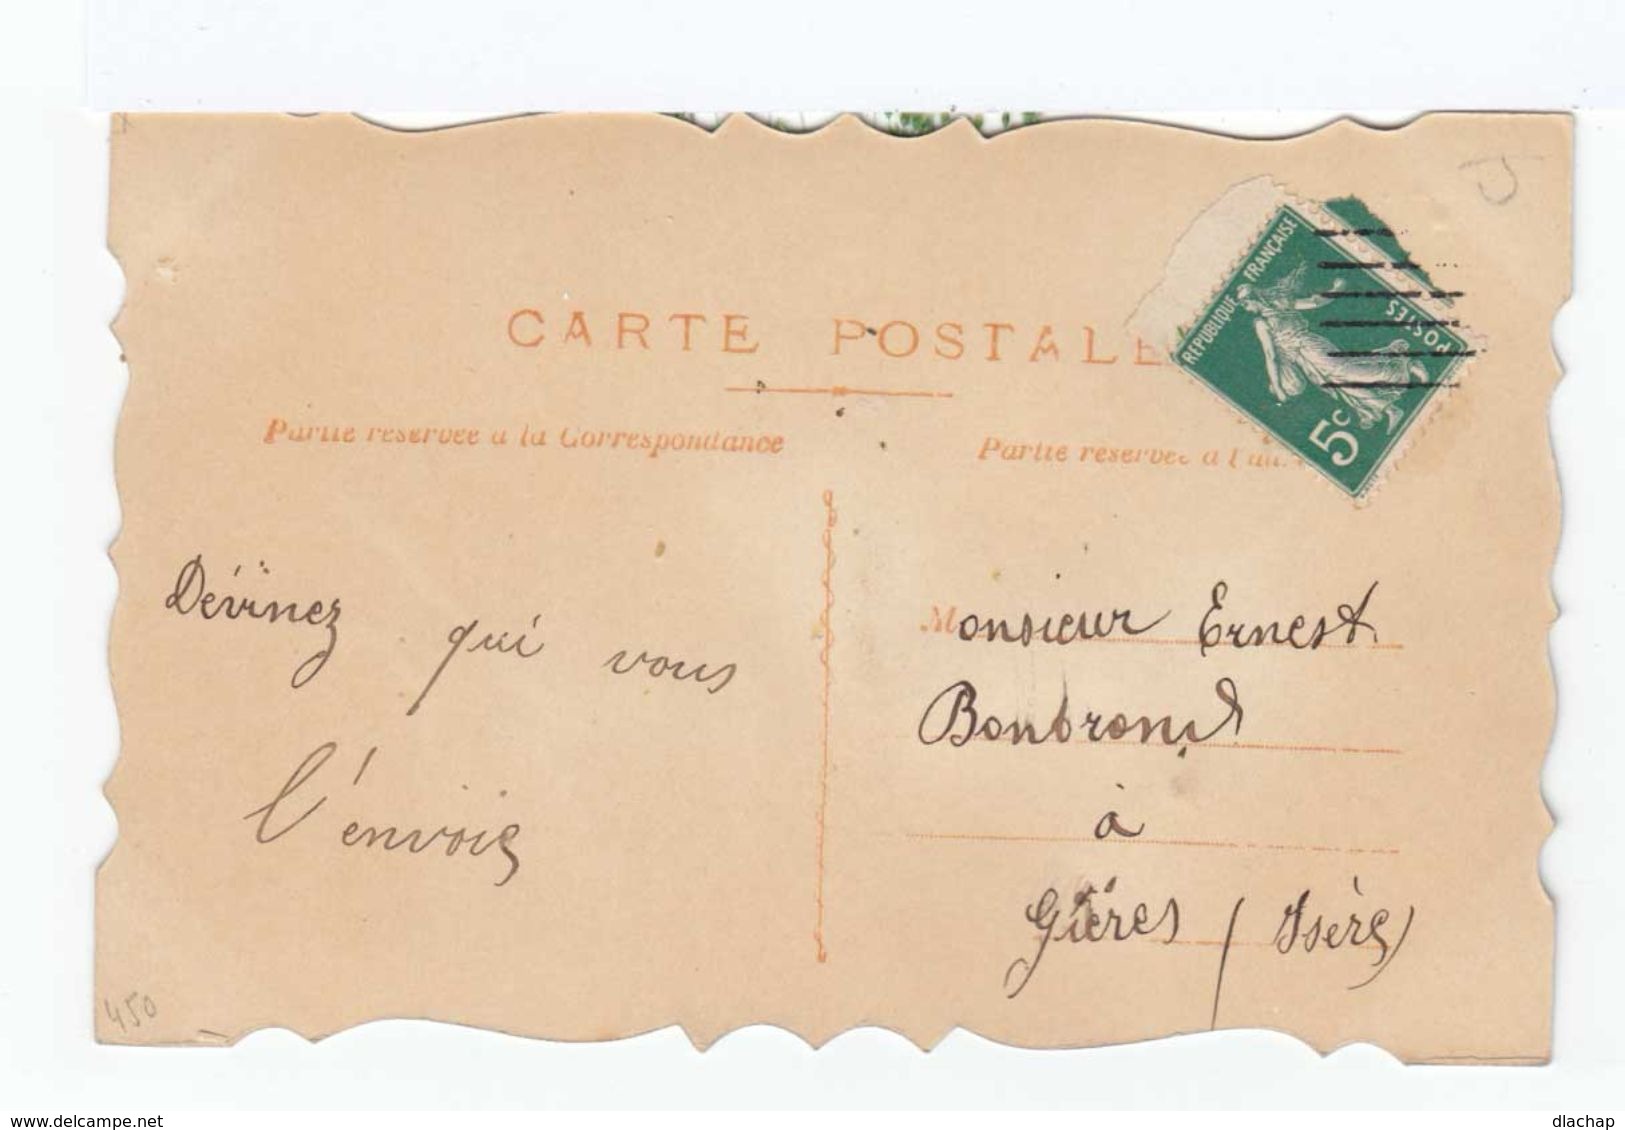 CARTE POSTALE
Partie réservée à la Correspondance
Partie réservée à l'a
RÉPUBLIQUE FRANÇAISE
POSTES
5c
Dévinez qui vous
l'envoie
Monsieur Ernest
Bonbrond
à
Gières (Isère)
450
delcampe.net
dlachap